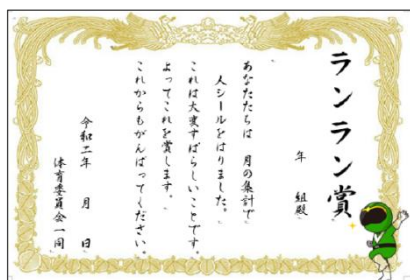 ランラン賞
年 組殿
あなたたちは 月の集計で
人シールをはりました。
これは大変すばらしいことです。
よってこれを賞します。
これからもがんばってください。
令和二年 月 日
体育委員会一同